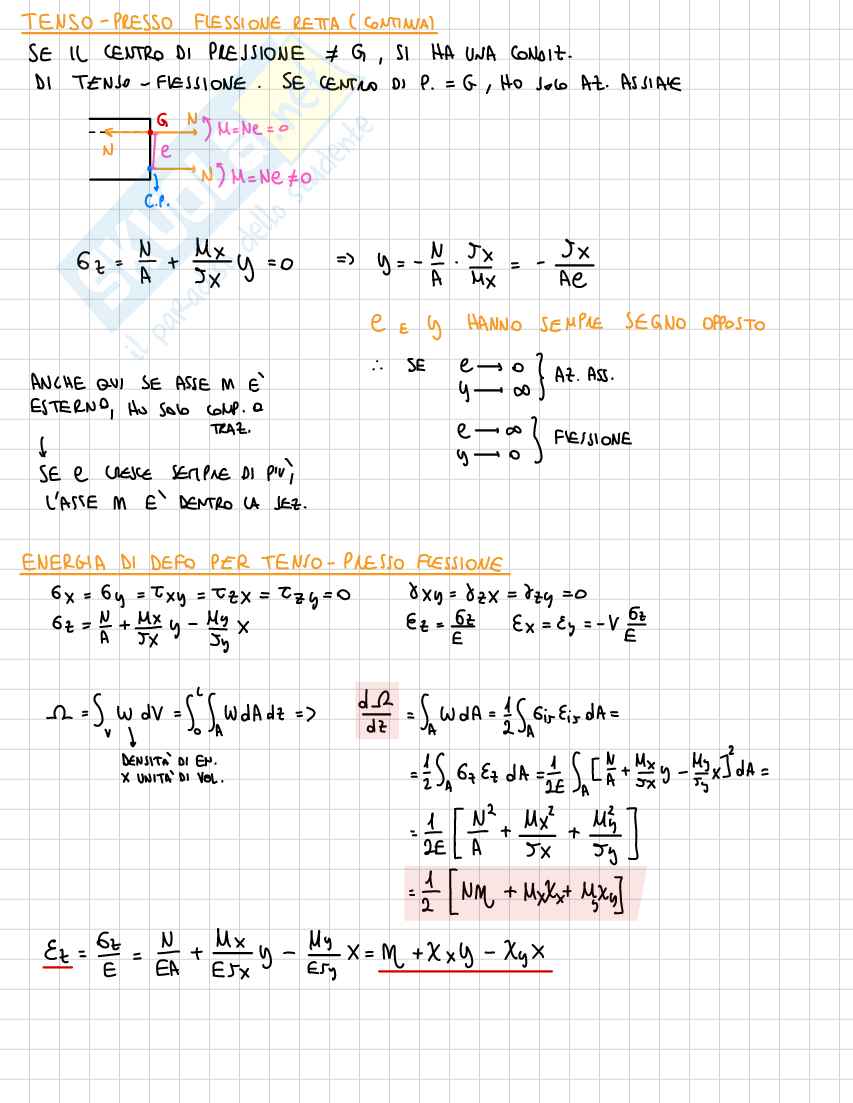 TENSO-PRESSO FLESSIONE RETTA (CONTINUA)
SE IL CENTRO DI PRESSIONE ≠ G, SI HA UNA CONDIT.
DI TENSO-FLESSIONE. SE CENTRO DI P. = G, HO SOLO AZ. ASSIALE
G N M=Ne=0
N e
N M=Ne≠0
C.P.
σz = N/A + Mx/Jx y = 0 => y = - N/A · Jx/Mx = - Jx/Ae
e E y HANNO SEMPRE SEGNO OPPOSTO
∴ SE e → 0
y → ∞ } AZ. ASS.
e → ∞
y → 0 } FLESSIONE
ANCHE QUI SE ASSE n È
ESTERNO, HO SOLO COMP. O
TRAZ.
↓
SE e CRESCE SEMPRE DI PIÙ,
L'ASSE n È DENTRO LA SEZ.
ENERGIA DI DEFO PER TENSO-PRESSO FLESSIONE
σx = σy = τxy = τzx = τzy = 0 γxy = γzx = γzy = 0
σz = N/A + Mx/Jx y - My/Jy x εz = σz/E εx = εy = -ν σz/E
Ω = ∫v ω dV = ∫₀ᴸ ∫A ω dA dz => dΩ/dz = ∫A ω dA = 1/2 ∫A σij εij dA =
DENSITÀ DI EN.
X UNITÀ DI VOL.
= 1/2 ∫A σz εz dA = 1/2E ∫A [N/A + Mx/Jx y - My/Jy x]² dA =
= 1/2E [N²/A + Mx²/Jx + My²/Jy]
= 1/2 [Nη + Mxχx + Myχy]
εz = σz/E = N/EA + Mx/EJx y - My/EJy x = η + χx y - χy x
SKUOLA.net
il paradiso dello studente